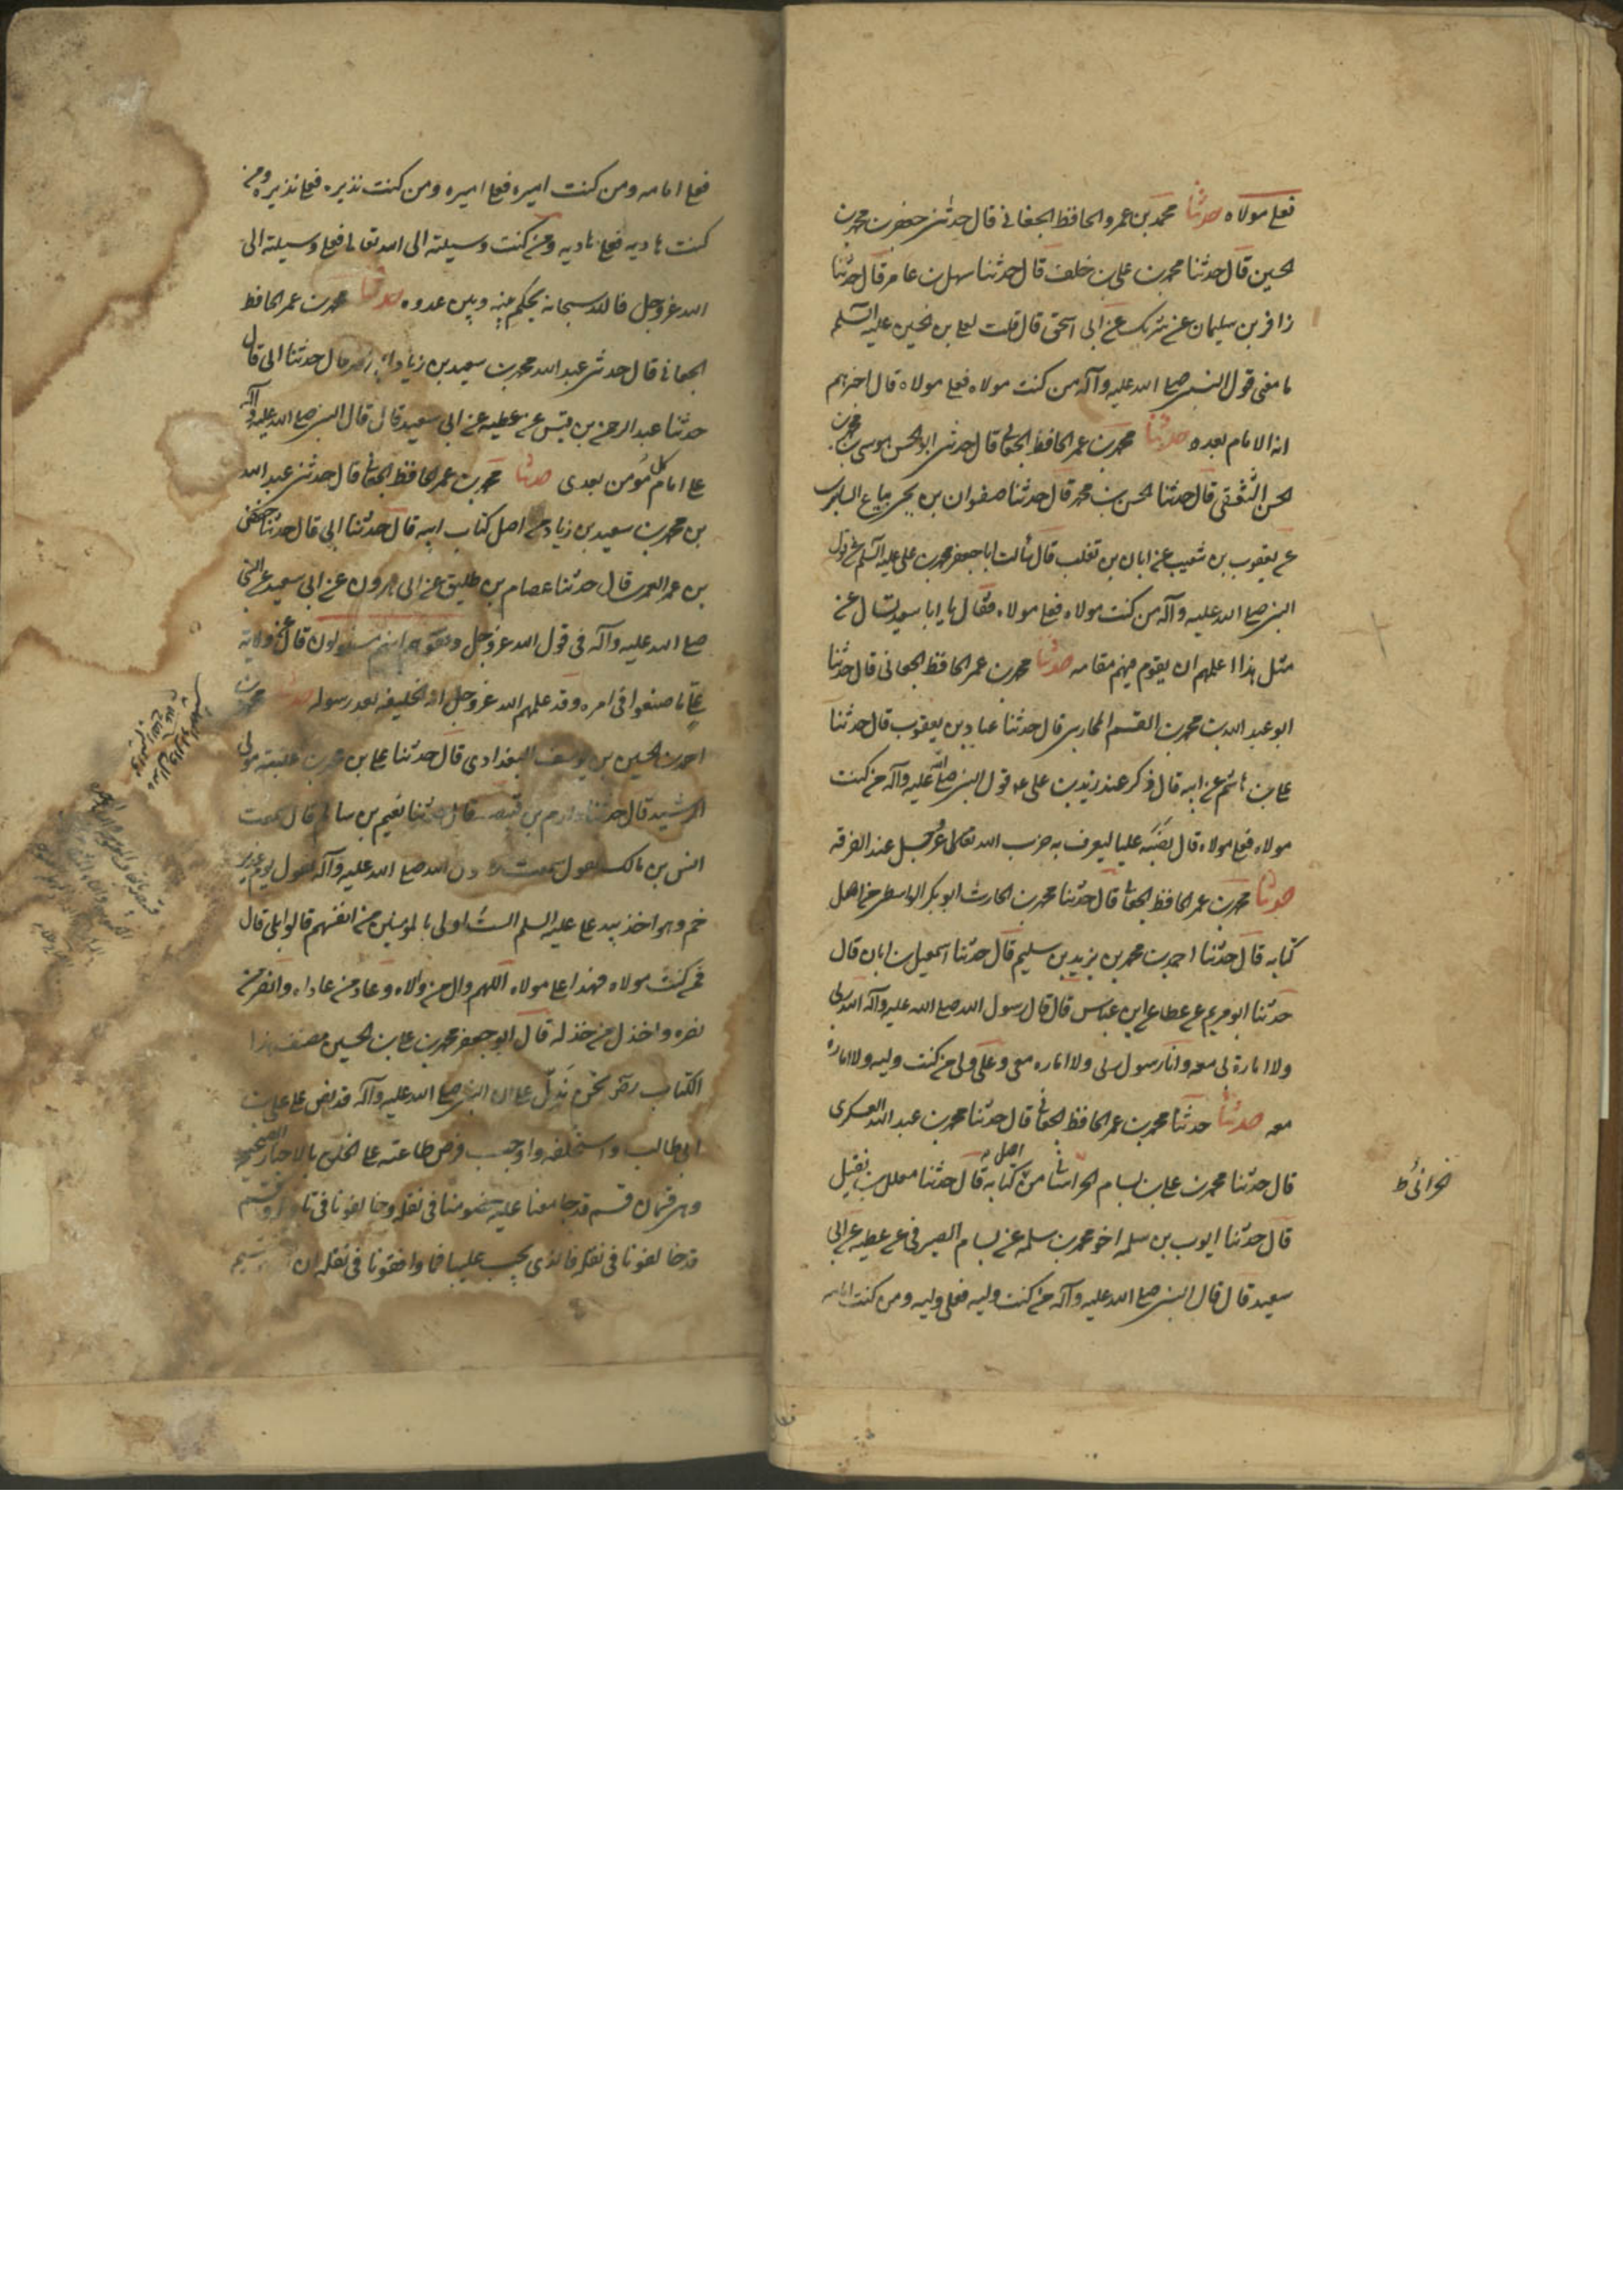 فعلي مولاه حدثنا محمد بن عمرو الحافظ الجعاني قال حدثني جعفر بن محمد بن
الحسين قال حدثنا محمد بن علي بن خلف قال حدثنا سهل بن عامر قال حدثنا
زافر بن سليمان عن شريك عن ابي اسحق قال قلت لعلي بن الحسين عليه السلم
ما معنى قول النبي صلى الله عليه وآله من كنت مولاه فعلي مولاه قال اخبرهم
انه الامام بعده حدثنا محمد بن عمر الحافظ الجعابي قال حدثني ابو الحسن موسى بن محمد بن
الحسن الثقفي قال حدثنا الحسن بن محمد قال حدثنا صفوان بن يحيى بياع السابري
عن يعقوب بن شعيب عن ابان بن تغلب قال سألت ابا جعفر محمد بن علي عليه السلم عن قول
النبي صلى الله عليه وآله من كنت مولاه فعلي مولاه فقال يا ابا سعيد تسال عن
مثل هذا اعلمهم ان يقوم فيهم مقامه حدثنا محمد بن عمر الحافظ الجعابي قال حدثنا
ابو عبد الله بن محمد بن القسم المحاربي قال حدثنا عباد بن يعقوب قال حدثنا
علي بن هاشم عن ابيه قال ذكر عند زيد بن علي عه قول النبي صلى الله عليه وآله من كنت
مولاه فعلي مولاه قال نصبه عليا ليعرف به حزب الله تعالى عز وجل عند الفرقه
حدثنا محمد بن عمر الحافظ الجعابي قال حدثنا محمد بن الحارث ابو بكر الواسطي من اصل
كتابه قال حدثنا احمد بن محمد بن يزيد بن سليم قال حدثنا اسمعيل بن ابان قال
حدثنا ابو مريم عن عطا عن ابن عباس قال قال رسول الله صلى الله عليه وآله الله ربي
ولا امارة لي معه وانا رسول ربي ولا اماره معي وعلي ولي من كنت وليه ولا امارة
معه حدثنا حدثنا محمد بن عمر الحافظ الجعابي قال حدثنا محمد بن عبد الله العسكري
قال حدثنا محمد بن علي بن بسام الحراني من اصل كتابه قال حدثنا معلل بن نفيل
قال حدثنا ايوب بن سلمه اخو محمد بن سلمه عن بسام الصيرفي عن عطيه عن ابي
سعيد قال قال النبي صلى الله عليه وآله من كنت وليه فعلي وليه ومن كنت امامه
فعلي امامه ومن كنت اميره فعلي اميره ومن كنت نذيره فعلي نذيره ومن
كنت هاديه فعلي هاديه ومن كنت وسيلته الى الله تعالى فعلي وسيلته الى
الله عز وجل فالله سبحانه يحكم بينه وبين عدوه حدثنا محمد بن عمر الحافظ
الجعابي قال حدثني عبد الله محمد بن سعيد بن زياد قال حدثنا ابي قال
حدثنا عبد الرحمن بن قيس عن عطيه عن ابي سعيد قال قال النبي صلى الله عليه وآله
علي امام كل مؤمن بعدي حدثنا محمد بن عمر الحافظ الجعابي قال حدثني عبد الله
بن محمد بن سعيد بن زياد من اصل كتاب ابيه قال حدثنا ابي قال حدثنا حفص
بن عمر العمري قال حدثنا عصام بن طليق عن ابي هرون عن ابي سعيد عن النبي
صلى الله عليه وآله في قول الله عز وجل وقفوهم انهم مسئولون قال عن ولاية
علي ما صنعوا في امره وقد علمهم الله عز وجل انه الخليفه بعد رسوله حدثنا محمد بن
احمد بن الحسين بن يوسف البغدادي قال حدثنا علي بن محمد بن عنبسه مولى
الرشيد قال حدثنا دارم بن قبيصه قال حدثنا نعيم بن سالم قال سمعت
انس بن مالك يقول سمعت رسول الله صلى الله عليه وآله يقول يوم غدير
خم وهو اخذ بيد علي عليه السلم الست اولى بالمومنين من انفسهم قالوا بلى قال
فمن كنت مولاه فهذا علي مولاه اللهم وال من والاه وعاد من عاداه وانصر من
نصره واخذل من خذله قال ابو جعفر محمد بن علي بن الحسين مصنف هذا
الكتاب نحن نستدل على ان النبي صلى الله عليه وآله قد نص على علي بن
ابي طالب واستخلفه واوجب فرض طاعته على الخلق بالاخبار الصحيحه
وهي قسمان قسم قد جامعنا عليه خصومنا في نقله وخالفونا في تاويله وقسم
قد خالفونا في نقله فالذي يجب علينا فيما وافقونا في نقله ان